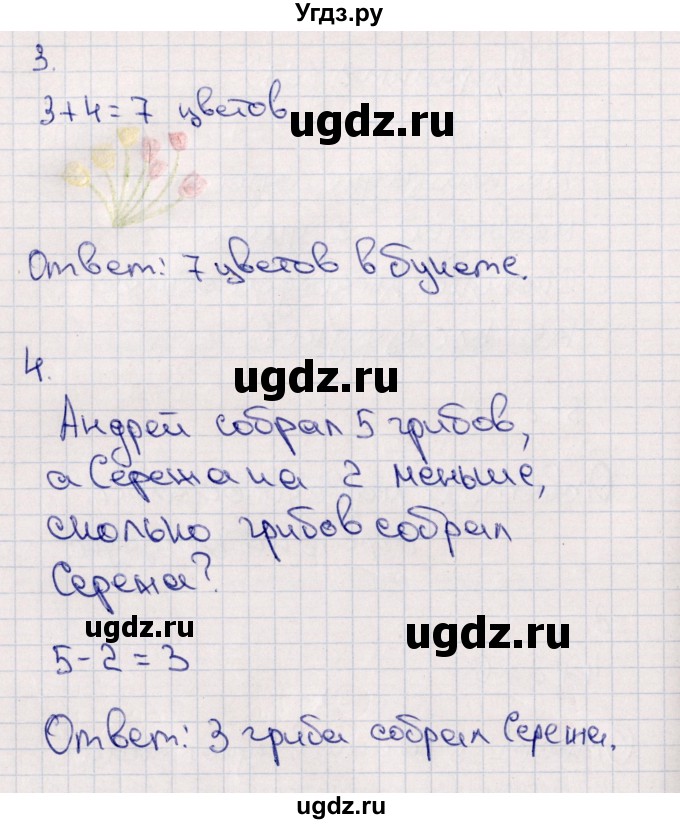 Угдз.ру
3.
3+4=7 цветов
ugdz.ru
Ответ: 7 цветов в букете.
4.
ugdz.ru
Андрей собрал 5 грибов,
а Сережа на 2 меньше,
сколько грибов собрал
Сережа?
ugdz.ru
ugdz.ru
5-2=3
Ответ: 3 гриба собрал Сережа.
ugdz.ru